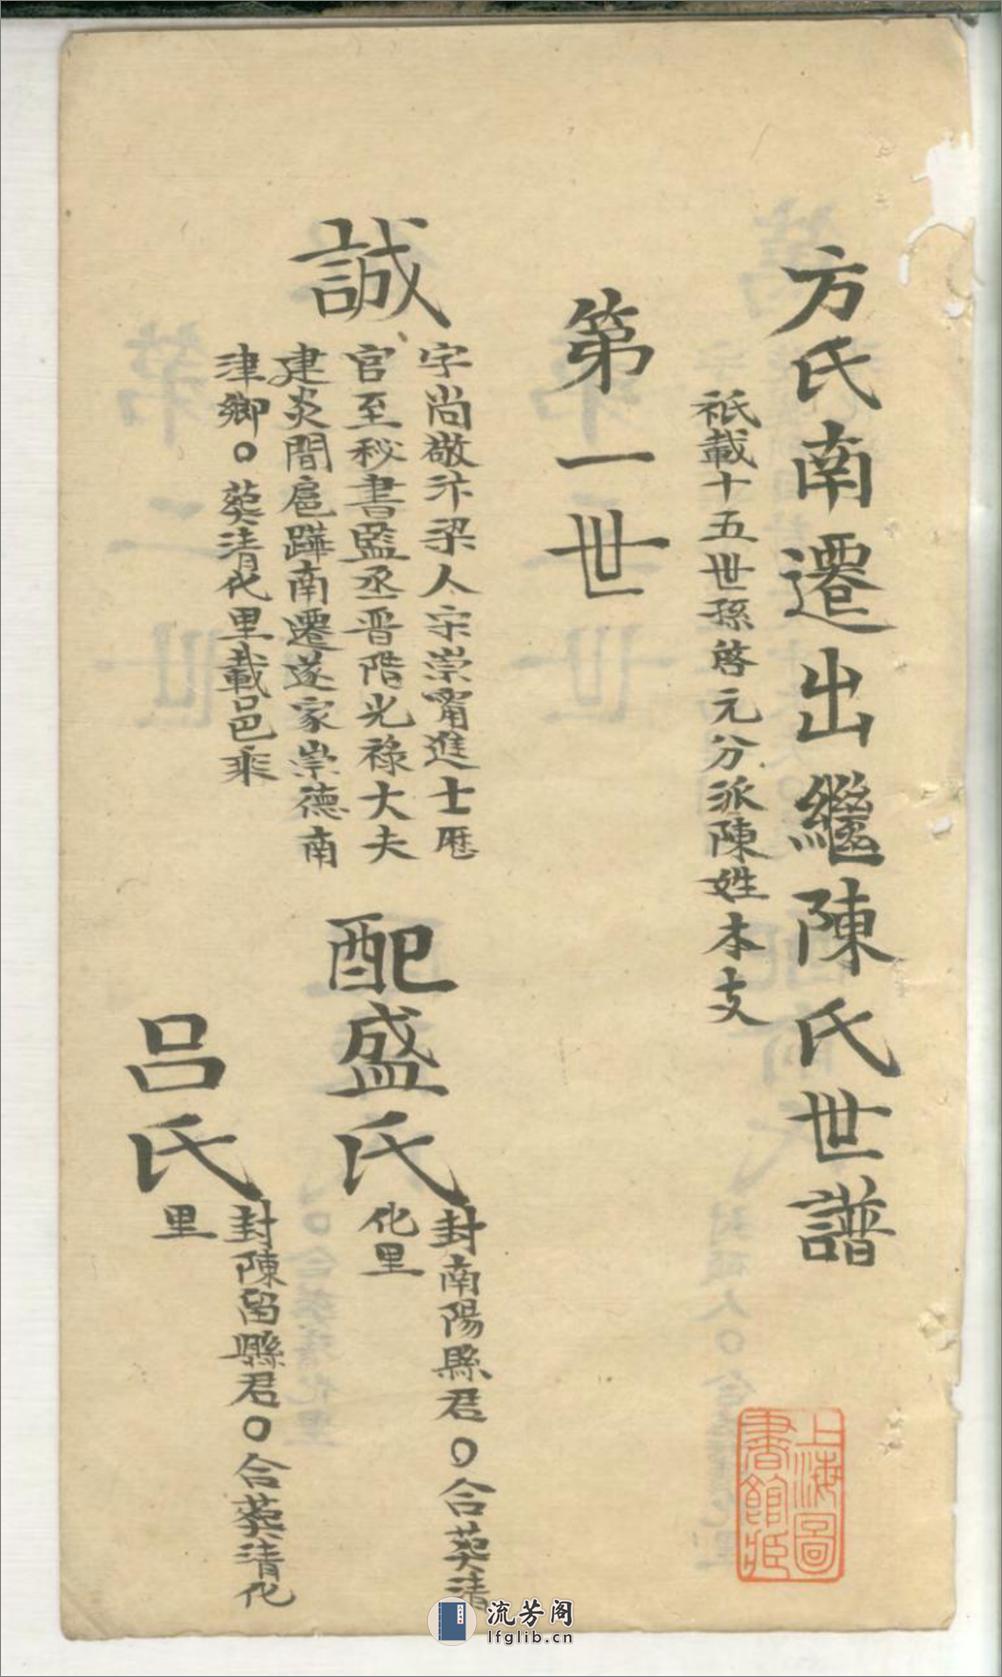 方氏南遷出繼陳氏世譜
祇載十五世孫啓元分派陳姓本支
第一世
誠
字尚敬汴梁人宋崇甯進士歷
官至秘書監丞晋階光祿大夫
建炎間扈蹕南遷遂家崇德南
津鄉〇葬清化里載邑乘
配盛氏
封南陽縣君〇合葬清
化里
呂氏
封陳留縣君〇合葬清化
里
上海圖
書館藏
流芳阁
lfglib.cn